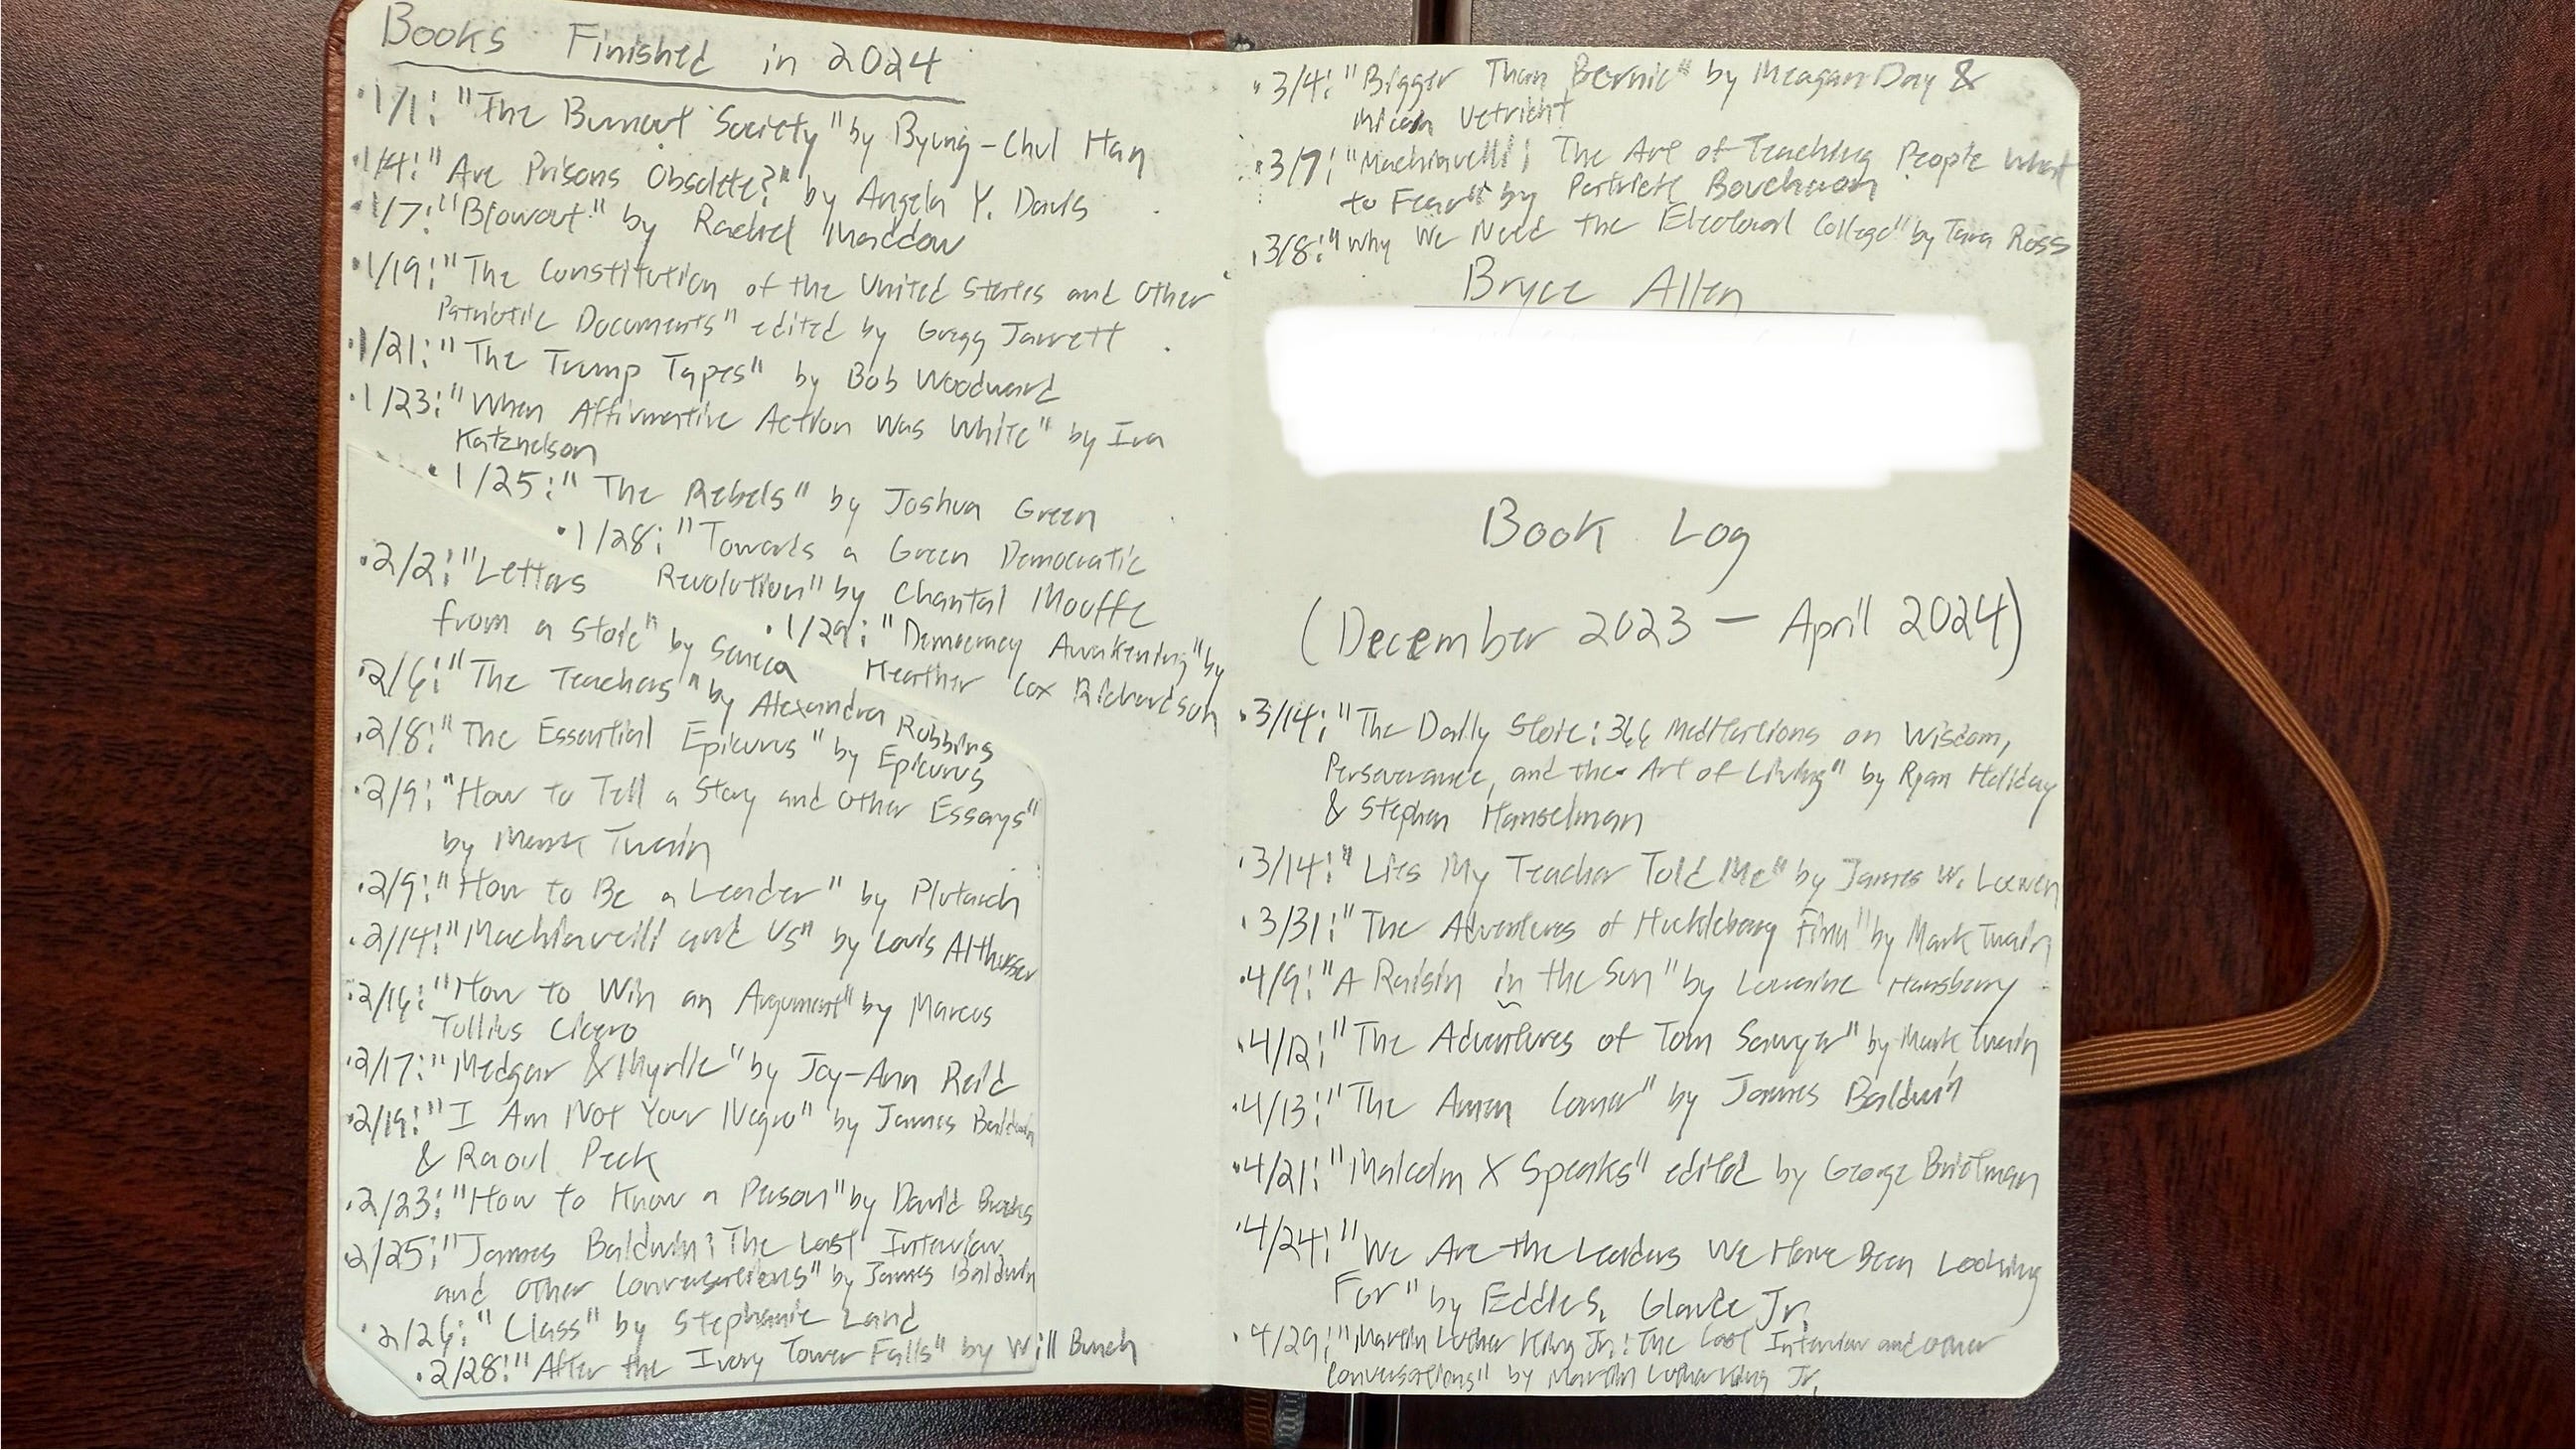 Books Finished in 2024
• 1/1: "The Burnout Society" by Byung-Chul Han
• 1/4: "Are Prisons Obsolete?" by Angela Y. Davis
• 1/7: "Blowout" by Rachel Maddow
• 1/19: "The Constitution of the United States and Other
Patriotic Documents" edited by Gregg Jarrett
• 1/21: "The Trump Tapes" by Bob Woodward
• 1/23: "When Affirmative Action Was White" by Ira
Katznelson
• 1/25: "The Rebels" by Joshua Green
• 1/28: "Towards a Green Democratic
Revolution" by Chantal Mouffe
• 1/29: "Democracy Awakening" by
Heather Cox Richardson
• 2/2: "Letters
from a Stoic" by Seneca
• 2/6: "The Teachers" by Alexandra Robbins
• 2/8: "The Essential Epicurus" by Epicurus
• 2/9: "How to Tell a Story and Other Essays"
by Mark Twain
• 2/9: "How to Be a Leader" by Plutarch
• 2/14: "Machiavelli and Us" by Louis Althusser
• 2/16: "How to Win an Argument" by Marcus
Tullius Cicero
• 2/17: "Medgar & Myrlie" by Joy-Ann Reid
• 2/19: "I Am Not Your Negro" by James Baldwin
& Raoul Peck
• 2/23: "How to Know a Person" by David Brooks
2/25: "James Baldwin: The Last Interview
and Other Conversations" by James Baldwin
• 2/26: "Class" by Stephanie Land
• 2/28: "After the Ivory Tower Falls" by Will Bunch
• 3/4: "Bigger Than Bernie" by Meagan Day &
Micah Uetricht
• 3/7: "Machiavelli: The Art of Teaching People What
to Fear" by Patrick Boucheron
• 3/8: "Why We Need the Electoral College" by Tara Ross
Bryce Allen
Book Log
(December 2023 – April 2024)
• 3/14: "The Daily Stoic: 366 Meditations on Wisdom,
Perseverance, and the Art of Living" by Ryan Holiday
& Stephen Hanselman
• 3/14: "Lies My Teacher Told Me" by James W. Loewen
• 3/31: "The Adventures of Huckleberry Finn" by Mark Twain
• 4/9: "A Raisin in the Sun" by Lorraine Hansberry
• 4/12: "The Adventures of Tom Sawyer" by Mark Twain
• 4/13: "The Amen Corner" by James Baldwin
• 4/21: "Malcolm X Speaks" edited by George Breitman
• 4/24: "We Are the Leaders We Have Been Looking
For" by Eddie S. Glaude Jr.
• 4/29: "Martin Luther King Jr.: The Last Interview and Other
Conversations" by Martin Luther King Jr.